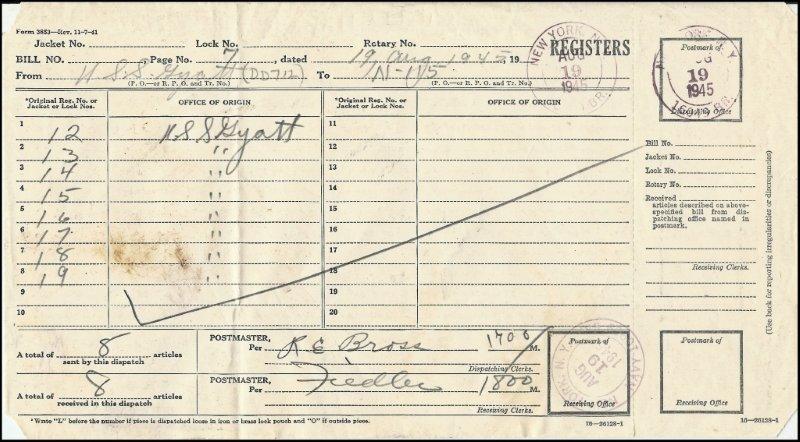 Form 3883—Rev. 11-7-41
Jacket No. Lock No. Rotary No. REGISTERS
BILL NO. Page No. 7, dated 19 Aug 1945, 19
From U.S.S. Gyatt (DD712) To N-115
(P. O.—or R. P. O. and Tr. No.) (P. O.—or R. P. O. and Tr. No.)
*Original Reg. No. or Jacket or Lock Nos. OFFICE OF ORIGIN *Original Reg. No. or Jacket or Lock Nos. OFFICE OF ORIGIN
1 12 U.S.S Gyatt 11
2 13 " 12
3 14 " 13
4 15 " 14
5 16 " 15
6 17 " 16
7 18 " 17
8 19 " 18
9 19
10 20
A total of 8 articles sent by this dispatch
POSTMASTER, Per R. E. Bross 1700 M.
Dispatching Clerks.
A total of 8 articles received in this dispatch
POSTMASTER, Per Fiedler 1800 M.
Receiving Clerks.
*Write "L" before the number if piece is dispatched loose in iron or brass lock pouch and "O" if outside piece.
16—26128-1
Postmark of
Receiving Office
AUG
19
NEW YORK, N.Y.
AUG
19
1945
Postmark of
N.Y.
AUG
19
1945
Dispatching Office
Bill No.
Jacket No.
Lock No.
Rotary No.
Received
articles described on above-
specified bill from dis-
patching office named in
postmark.
Receiving Clerks.
(Use back for reporting irregularities or discrepancies)
Postmark of
Receiving Office
16—26128-1